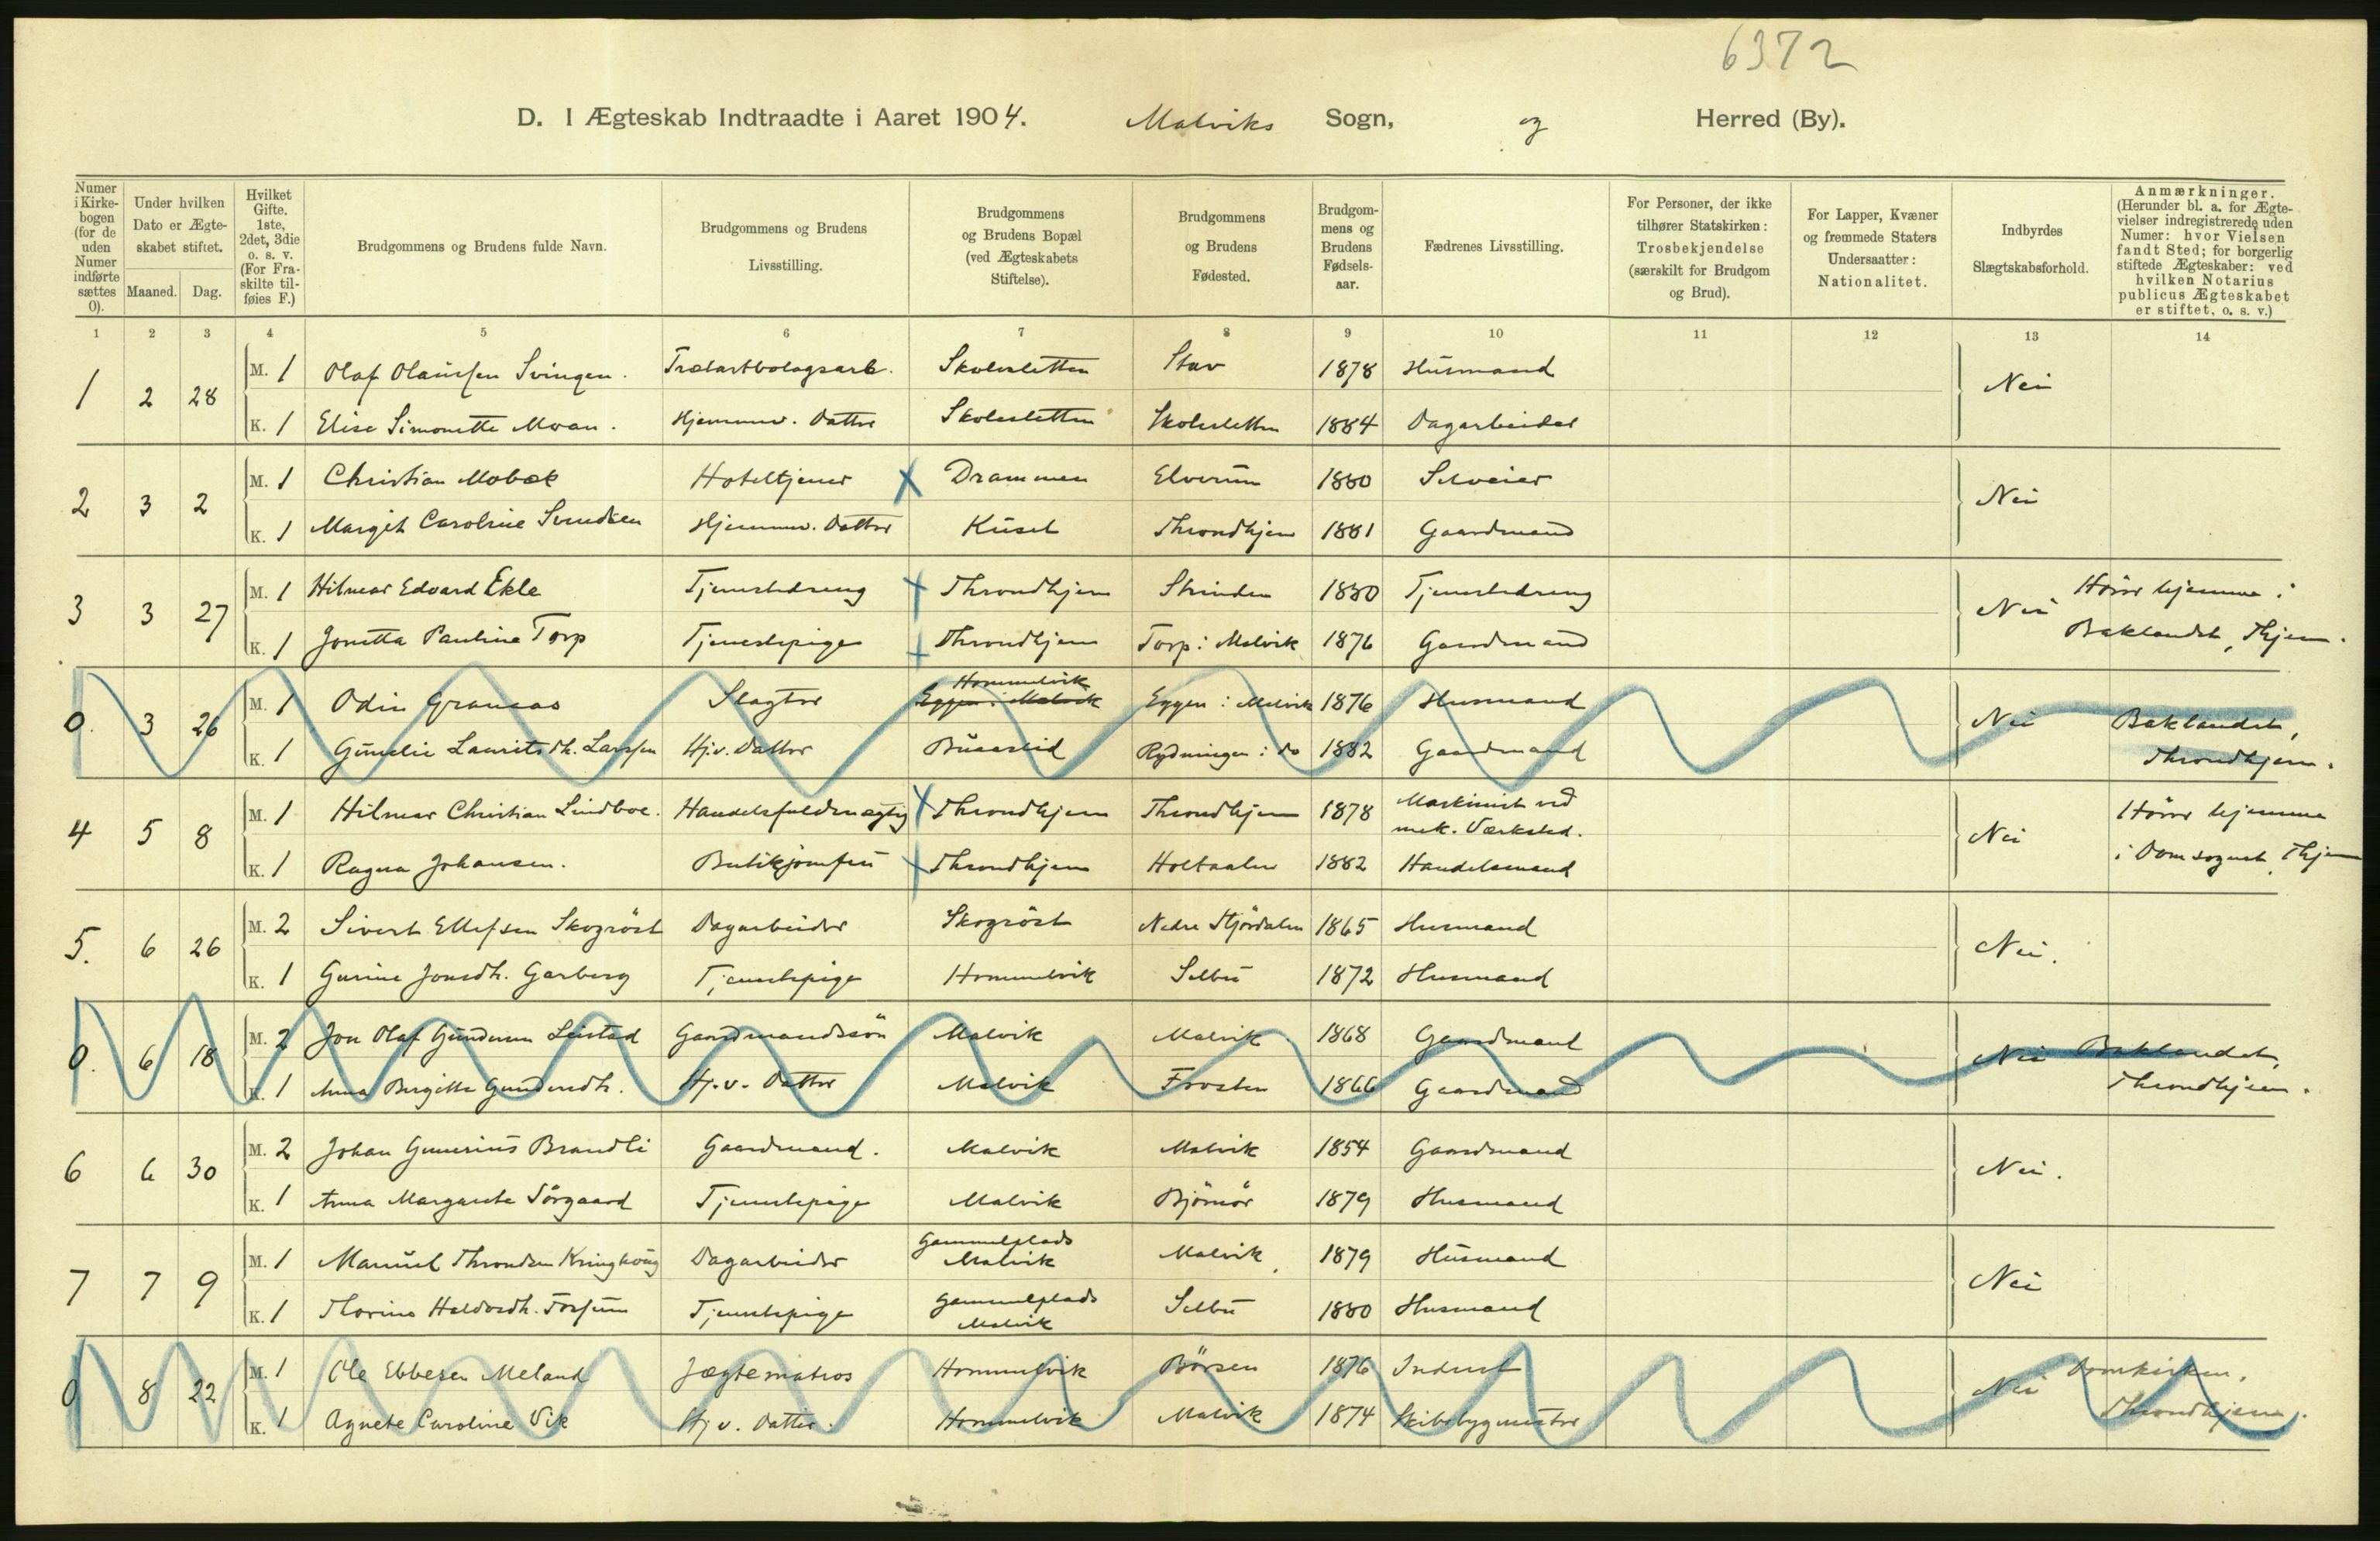 6372
D. I Ægteskab Indtraadte i Aaret 1904. Malviks Sogn, og Herred (By).
Numer i Kirkebogen (for de uden Numer indførte sættes 0).
Under hvilken Dato er Ægteskabet stiftet.
Maaned. Dag.
Hvilket Gifte. 1ste, 2det, 3die o. s. v. (For Fraskilte tilføies F.)
Brudgommens og Brudens fulde Navn.
Brudgommens og Brudens Livsstilling.
Brudgommens og Brudens Bopæl (ved Ægteskabets Stiftelse).
Brudgommens og Brudens Fødested.
Brudgommens og Brudens Fødselsaar.
Fædrenes Livsstilling.
For Personer, der ikke tilhører Statskirken: Trosbekjendelse (særskilt for Brudgom og Brud).
For Lapper, Kvæner og fremmede Staters Undersaatter: Nationalitet.
Indbyrdes Slægtskabsforhold.
Anmærkninger. (Herunder bl. a. for Ægtevielser indregistrerede uden Numer: hvor Vielsen fandt Sted; for borgerlig stiftede Ægteskaber: ved hvilken Notarius publicus Ægteskabet er stiftet, o. s. v.)
1 2 3 4 5 6 7 8 9 10 11 12 13 14
1 2 28 M. 1 Olaf Olaussen Svingen. Skolesletten Stav 1878 Husmand Nei
K. 1 Elise Simonette Moan. Hjemmev. Datter Skolesletten Skolesletten 1884 Dagarbeider
2 3 2 M. 1 Christian Mobæk Hoteltjener Drammen Elverum 1880 Selveier Nei
K. 1 Margit Caroline Svendsen Hjemmev. Datter Kuset Throndhjem 1881 Gaardmand
3 3 27 M. 1 Hilmar Edvard Ekle Tjenestedreng Throndhjem Strinden 1880 Tjenestedreng Nei Hører hjemme i
K. 1 Jonetta Pauline Torp Tjenestepige Throndhjem Torp i Malvik 1876 Gaardmand Baklandet, Thjem.
0. 3 26 M. 1 Odin Granaas Slagter Hommelvik Eggen i Malvik Eggen i Malvik 1876 Husmand Nei Baklandet,
K. 1 Gunelie Lauritsdh. Larssen Hj.v. Datter Buaasleid Rydningen i do 1882 Gaardmand Throndhjem.
4 5 8 M. 1 Hilmar Christian Lindboe. Handelsfuldmægtig Throndhjem Throndhjem 1878 Maskinist ved mek. Værksted. Nei Hører hjemme
K. 1 Ragna Johansen. Butikjomfru Throndhjem Holtaalen 1882 Handelsmand i Domsognet, Thjem
5. 6 26 M. 2 Sivert Ellefsen Skogröst Dagarbeider Skogröst Nedre Stjördalen 1865 Husmand Nei.
K. 1 Gurine Jonsdh. Garberg Tjenestepige Hommelvik Selbu 1872 Husmand
0. 6 18 M. 2 Jon Olaf Gundersen Leistad Gaardmandssön Malvik Malvik 1868 Gaardmand Nei Baklandet,
K. 1 Anna Bergitte Gundersdh. Hj.v. Datter Malvik Frosten 1866 Gaardmand Throndhjem.
6 6 30 M. 2 Johan Gunerius Brandli Gaardmand. Malvik Malvik 1854 Gaardmand Nei.
K. 1 Anna Margarete Sörgaard Tjenestepige Malvik Björnör 1879 Husmand
7 7 9 M. 1 Manuel Throndsen Kringhoug Dagarbeider Gammelplads Malvik Malvik 1879 Husmand Nei
K. 1 Thorine Haldorsdh. Fossum Tjenestepige Gammelplads Malvik Selbu 1880 Husmand
0 8 22 M. 1 Ole Ebbesen Meland Jægtematros Hommelvik Börsen 1876 Inderst Nei Domkirken,
K. 1 Agnete Caroline Vik Hj v. Datter. Hommelvik Malvik 1874 Skibsbygmester Throndhjem.